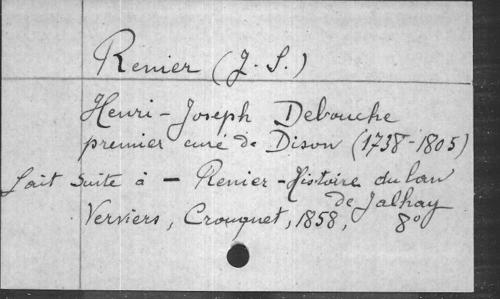 Renier (J. S.)
Henri-Joseph Debouche
premier curé de Dison (1738-1805)
Fait suite à - Renier - Histoire du ban
de Jalhay
Verviers, Crouquet, 1858, 8°